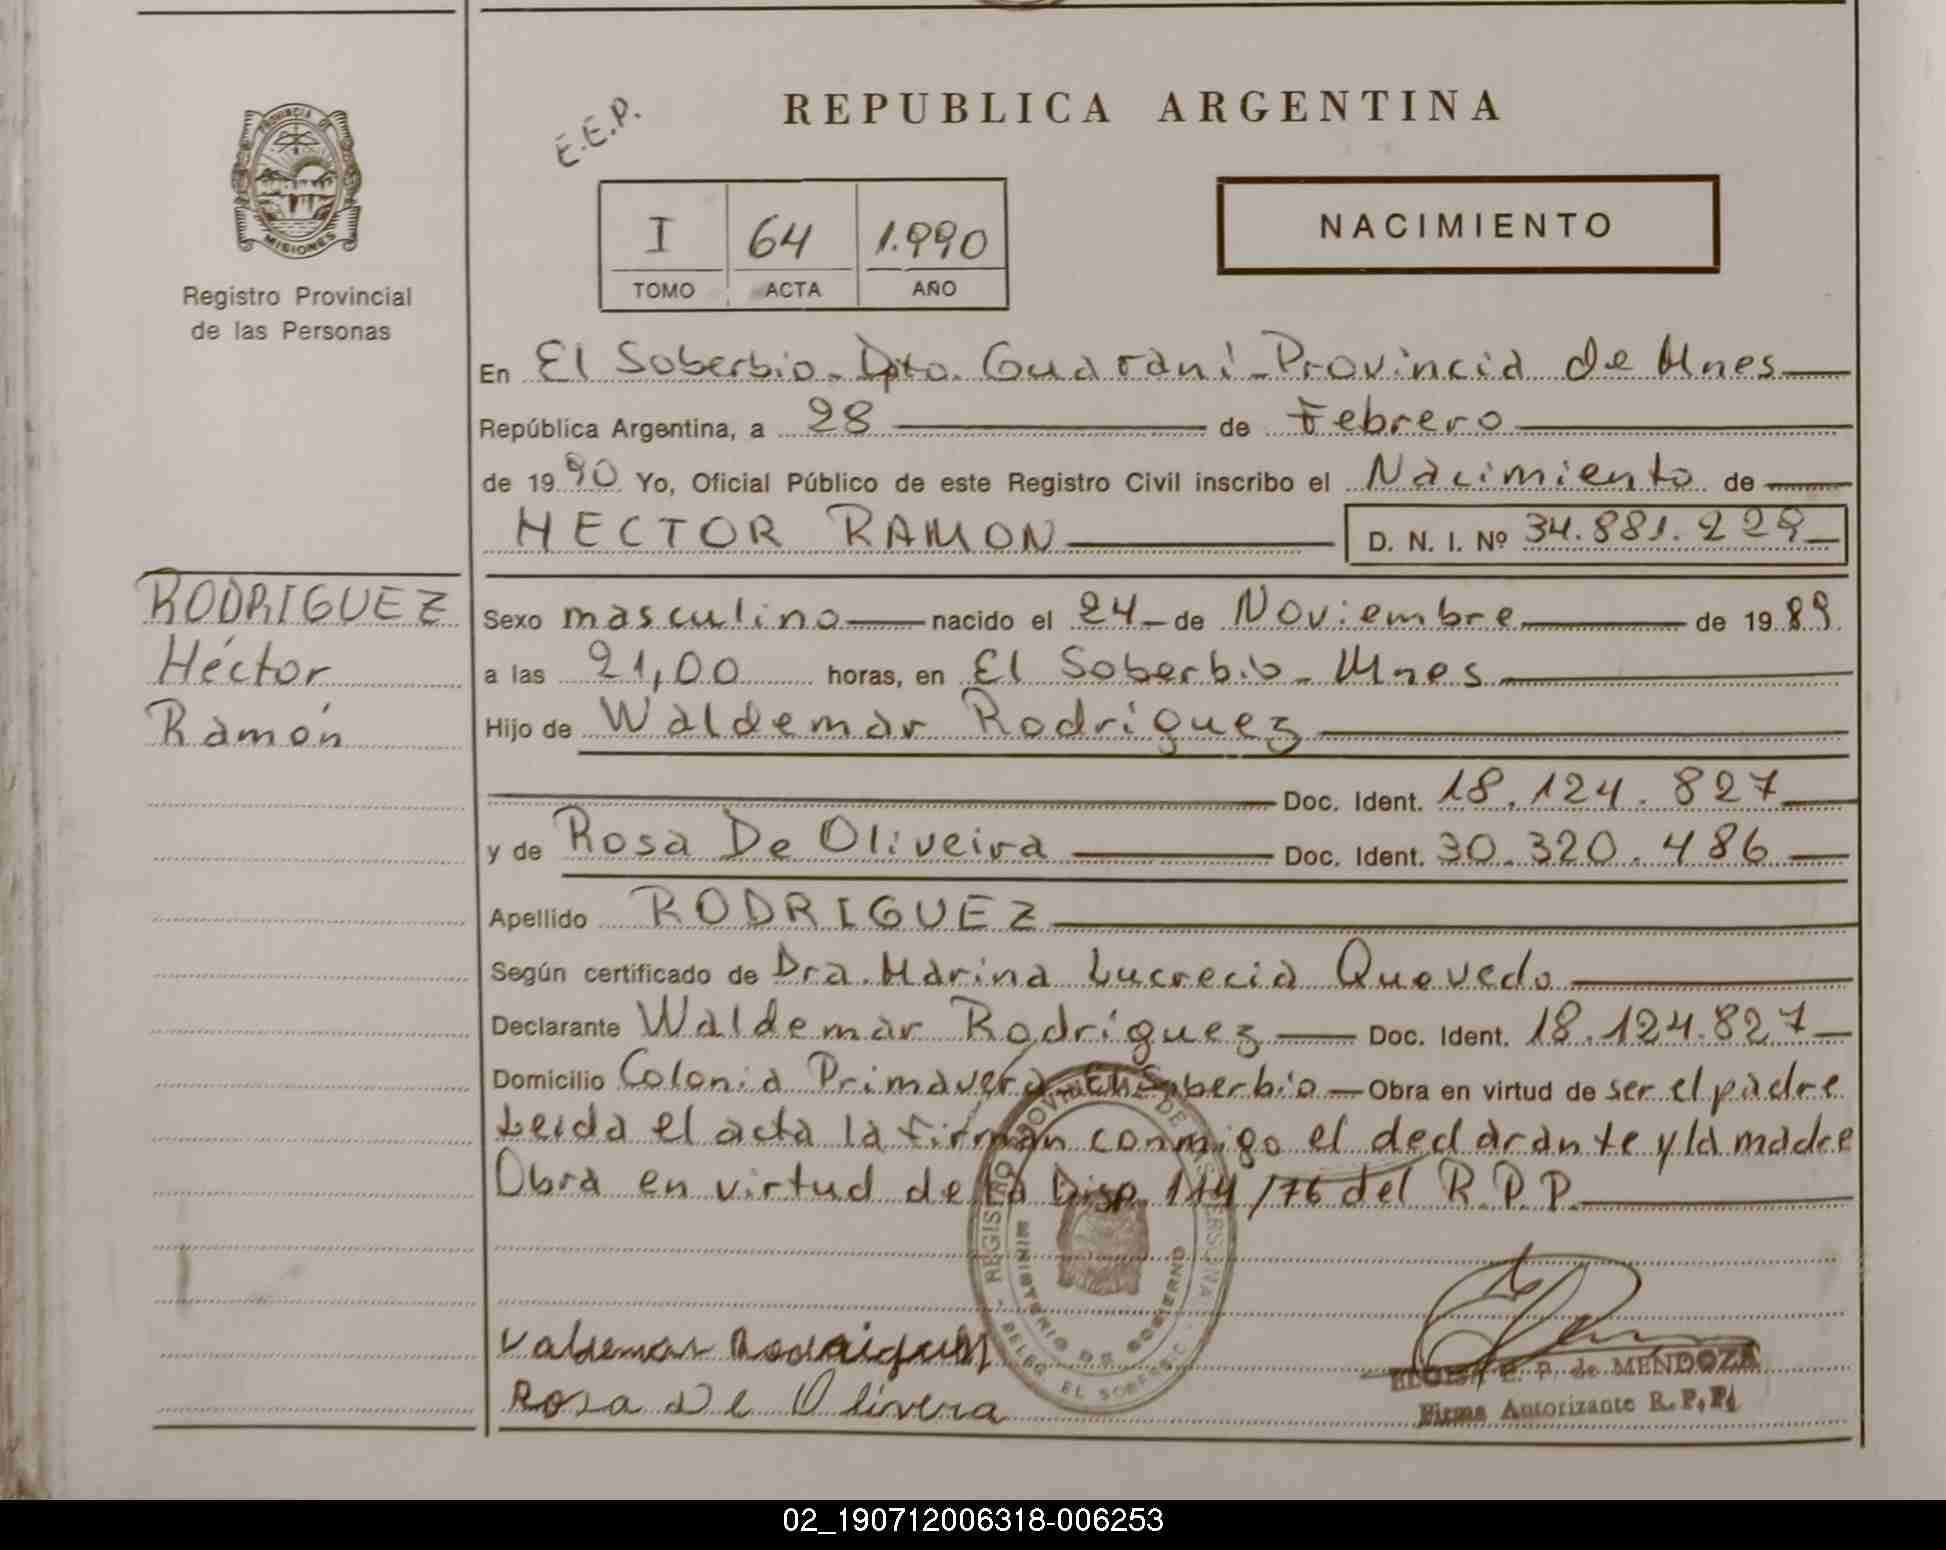 REPUBLICA ARGENTINA
E.E.P.
PROVINCIA DE
MISIONES
Registro Provincial
de las Personas
I 64 1.990
TOMO ACTA AÑO
NACIMIENTO
En El Soberbio - Dpto. Guaraní - Provincia de Mnes
República Argentina, a 28 de Febrero
de 1990 Yo, Oficial Público de este Registro Civil inscribo el Nacimiento de
HECTOR RAMON D. N. I. Nº 34.881.229
RODRIGUEZ
Héctor
Ramón
Sexo masculino nacido el 24 - de Noviembre de 1989
a las 21,00 horas, en El Soberbio - Mnes
Hijo de Waldemar Rodriguez
Doc. Ident. 18.124.827
y de Rosa De Oliveira Doc. Ident. 30.320.486
Apellido RODRIGUEZ
Según certificado de Dra. Marina Lucrecia Quevedo
Declarante Waldemar Rodriguez Doc. Ident. 18.124.827
Domicilio Colonia Primavera - El Soberbio - Obra en virtud de ser el padre
Leida el acta la firman conmigo el declarante y la madre
Obra en virtud de la Disp. 114/76 del R.P.P.
REGISTRO PROVINCIAL DE LAS PERSONAS
MINISTERIO DE GOBIERNO
DELEG. EL SOBERBIO
Valdemar Rodriguez
Rosa De Olivera
ELOISA E. P. de MENDOZA
Firma Autorizante R.P.P.
02_190712006318-006253